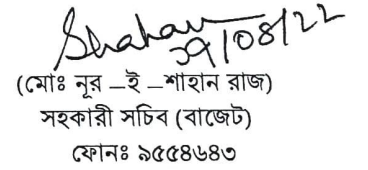 Shahan
২৯/08/22
(মোঃ নূর –ই –শাহান রাজ)
সহকারী সচিব (বাজেট)
ফোনঃ ৯৫৫৪৬৪৩